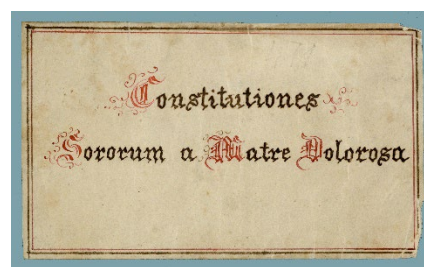 Constitutiones
Sororum a Matre Dolorosa